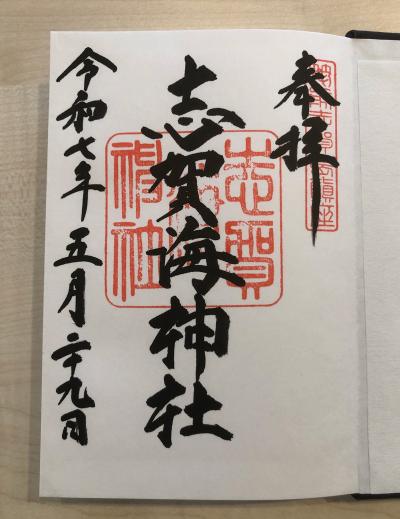 奉拝
志賀海神社
志賀
神社
令和七年五月二十九日